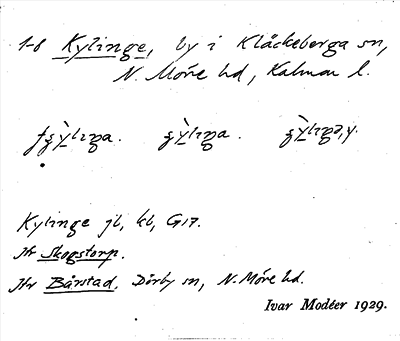 1-6 Kylinge, by i Kläckeberga sn,
N. Möre hd, Kalmar l.
Kylinge jb, kb, G17.
Jfr Skogstorp.
Jfr Bårstad, Dörby sn, N. Möre hd.
Ivar Modéer 1929.